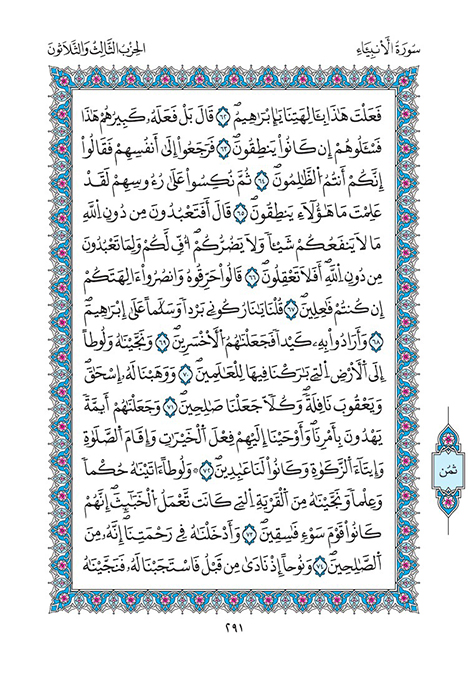 سُورَةُ الْأَنبِيَاءِ
الحِزْبُ الثَّالِثُ وَالثَّلَاثُونَ
فَعَلْتَ هَٰذَا بِـَٔالِهَتِنَا يَٰٓإِبْرَٰهِيمُۖ ٦٢ قَالَ بَلْ فَعَلَهُۥ كَبِيرُهُمْ هَٰذَا
فَسْـَٔلُوهُمُۥٓ إِن كَانُوا۟ يَنطِقُونَۖ ٦٣ فَرَجَعُوٓا۟ إِلَىٰٓ أَنفُسِهِمْ فَقَالُوٓا۟
إِنَّكُمُۥٓ أَنتُمُ الظَّٰلِمُونَۖ ٦٤ ثُمَّ نُكِسُوا۟ عَلَىٰ رُءُوسِهِمْ لَقَدْ
عَلِمْتَ مَا هَٰٓؤُلَآءِ يَنطِقُونَۖ ٦٥ قَالَ أَفَتَعْبُدُونَ مِن دُونِ اللَّهِ
مَا لَا يَنفَعُكُمْ شَيْـًٔا وَلَا يَضُرُّكُمُۥٓۖ أُفِّ لَّكُمْ وَلِمَا تَعْبُدُونَ
مِن دُونِ اللَّهِۖ أَفَلَا تَعْقِلُونَۖ ٦٦ قَالُوا۟ حَرِّقُوهُ وَانصُرُوٓا۟ ءَالِهَتَكُمُۥٓ
إِن كُنتُمْ فَٰعِلِينَۖ ٦٧ قُلْنَا يَٰنَارُ كُونِي بَرْدًا وَسَلَٰمًا عَلَىٰٓ إِبْرَٰهِيمَۖ
٦٨ وَأَرَادُوا۟ بِهِۦ كَيْدًا فَجَعَلْنَٰهُمُ الْأَخْسَرِينَۖ ٦٩ وَنَجَّيْنَٰهُ وَلُوطًا
إِلَى الْأَرْضِ الَّتِي بَٰرَكْنَا فِيهَا لِلْعَٰلَمِينَۖ ٧٠ وَوَهَبْنَا لَهُۥٓ إِسْحَٰقَۖ
وَيَعْقُوبَ نَافِلَةًۖ وَكُلًّا جَعَلْنَا صَٰلِحِينَۖ ٧١ وَجَعَلْنَٰهُمُۥٓ أَيِمَّةً
يَهْدُونَ بِأَمْرِنَاۖ وَأَوْحَيْنَآ إِلَيْهِمْ فِعْلَ الْخَيْرَٰتِ وَإِقَامَ الصَّلَوٰةِ
وَإِيتَآءَ الزَّكَوٰةِ وَكَانُوا۟ لَنَا عَٰبِدِينَۖ ٧٢ وَلُوطًا ءَاتَيْنَٰهُ حُكْمًا
وَعِلْمًا وَنَجَّيْنَٰهُ مِنَ الْقَرْيَةِ الَّتِي كَانَت تَّعْمَلُ الْخَبَٰٓئِثَۖ إِنَّهُمْ
كَانُوا۟ قَوْمَ سَوْءٍ فَٰسِقِينَۖ ٧٣ وَأَدْخَلْنَٰهُ فِي رَحْمَتِنَآۖ إِنَّهُۥ مِنَ
الصَّٰلِحِينَۖ ٧٤ وَنُوحًا إِذْ نَادَىٰ مِن قَبْلُ فَاسْتَجَبْنَا لَهُۥ فَنَجَّيْنَٰهُ
ثُمُن
٢٩١